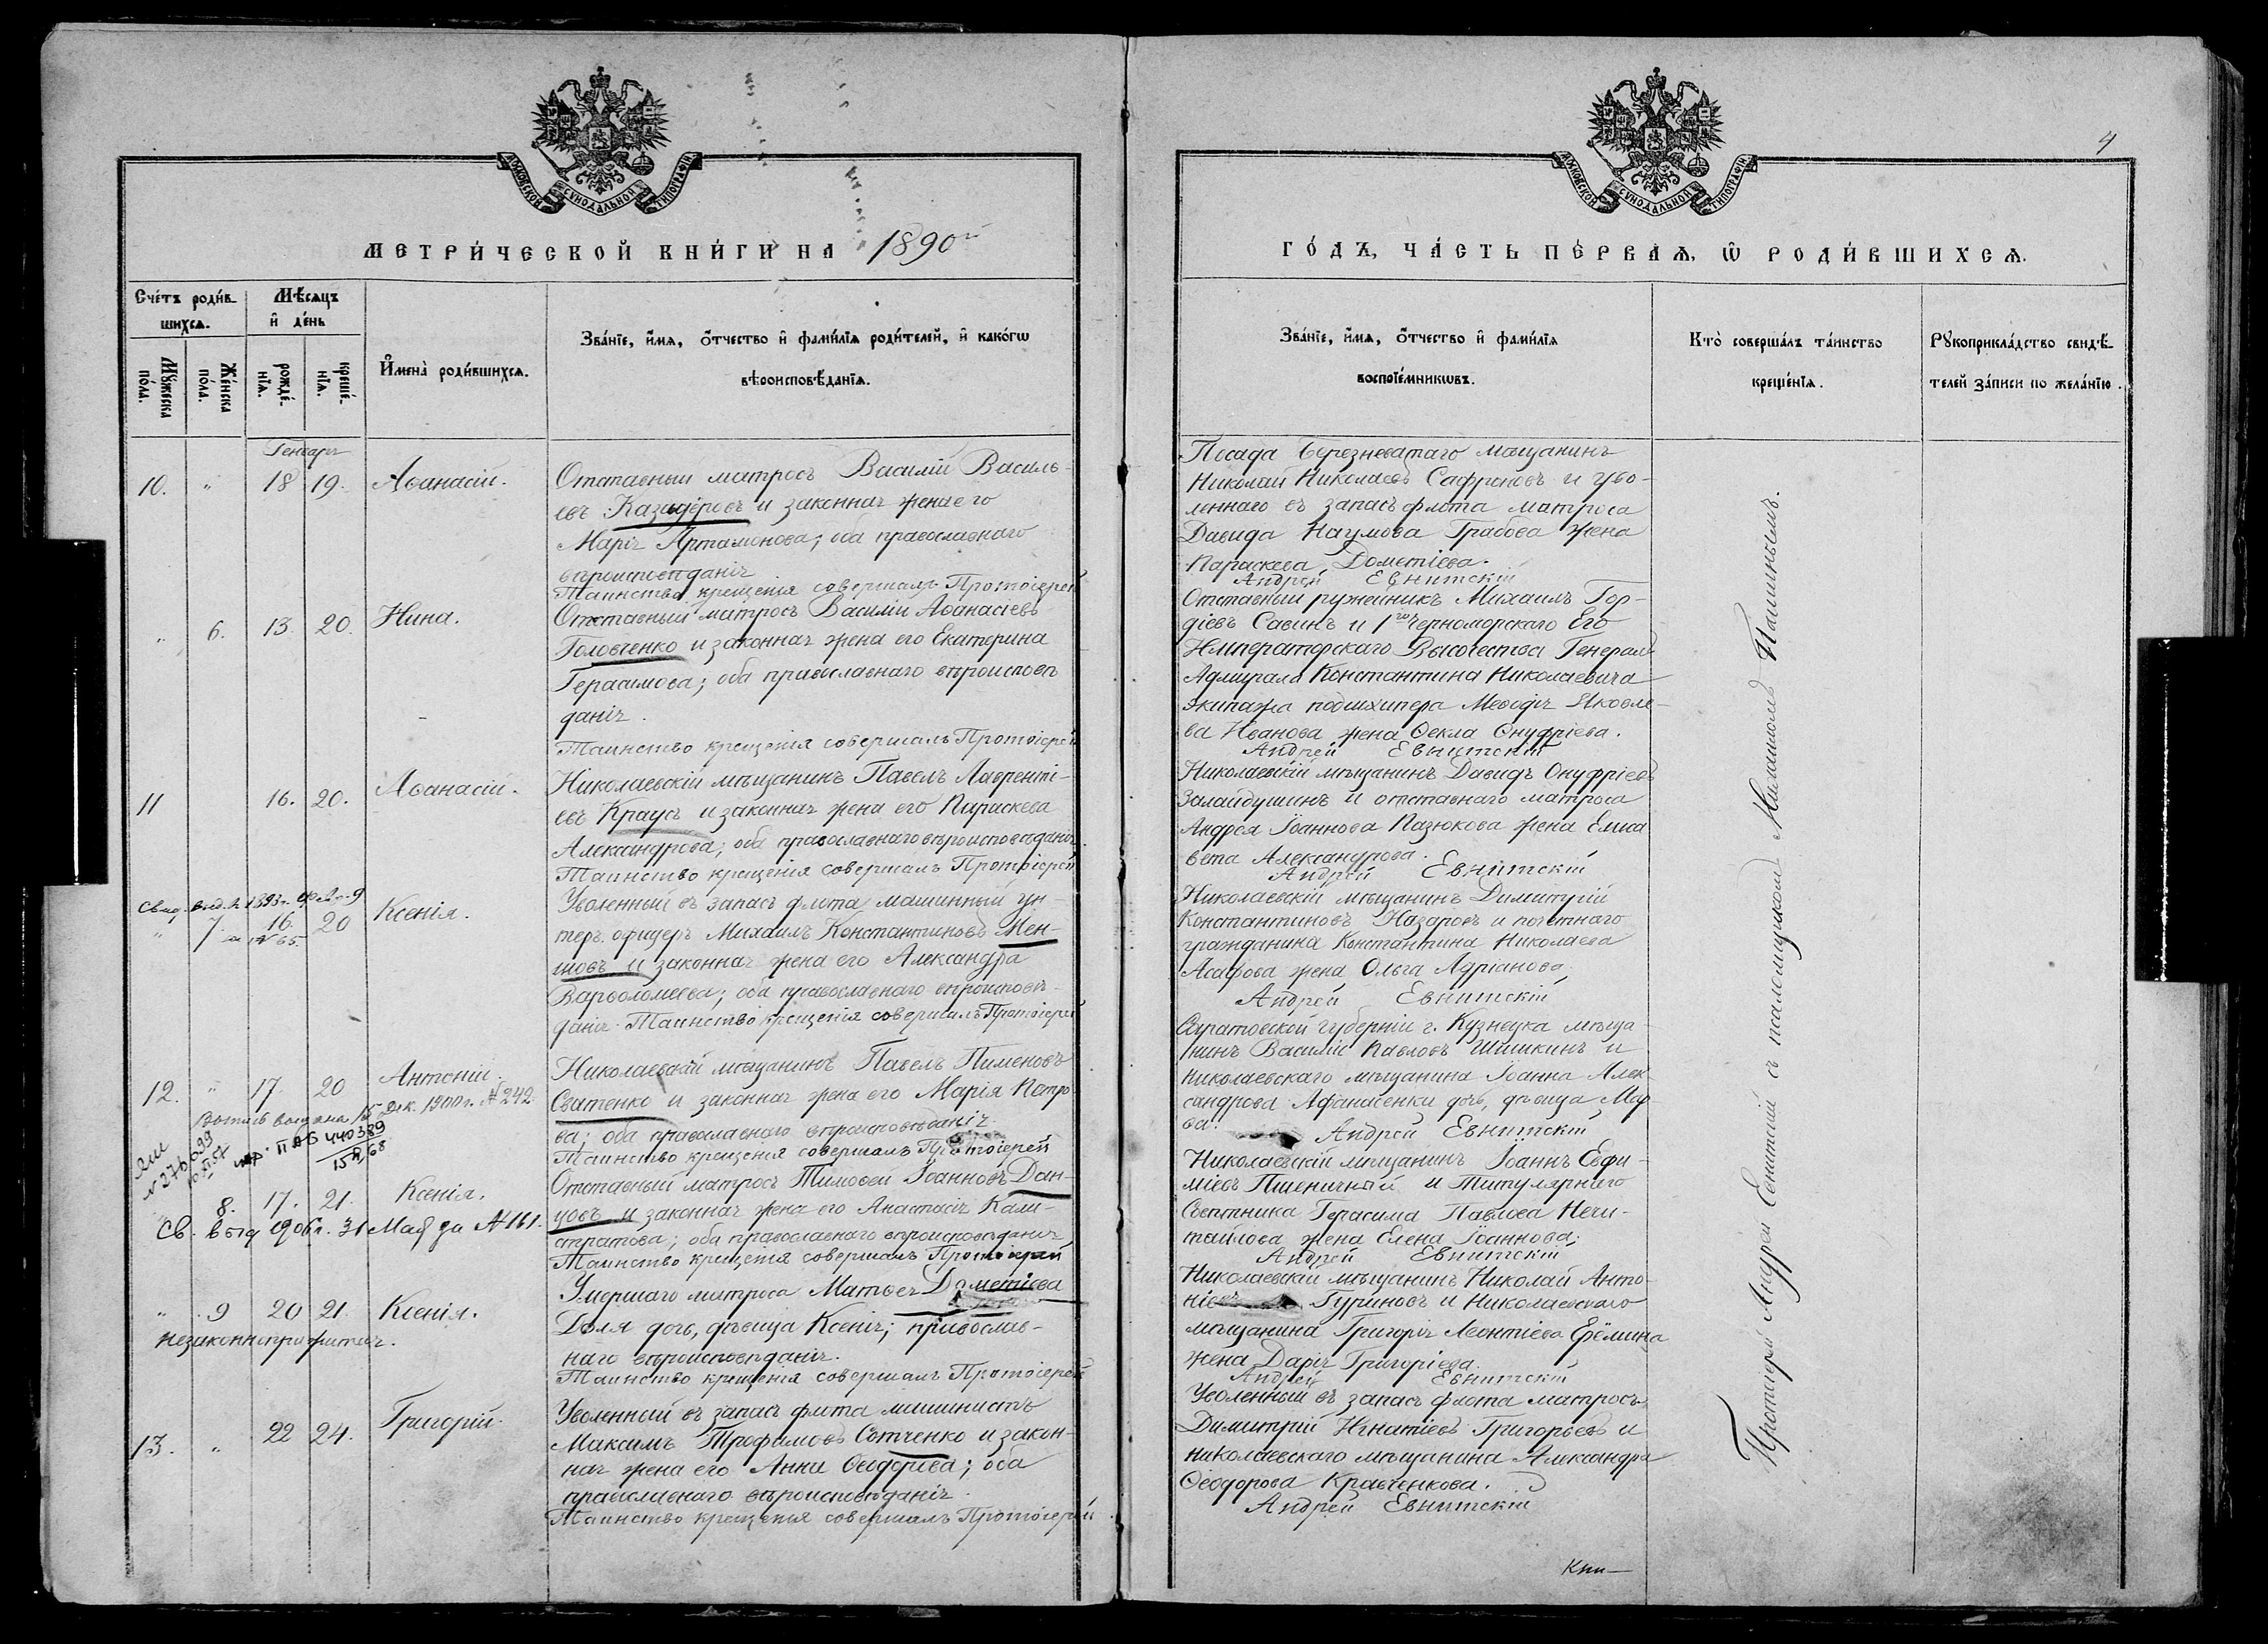 МОСКОВСКОЙ СѴНОДАЛЬНОЙ ТИПОГРАФІИ
МЕТРИ́ЧЕСКОЙ КНИ́ГИ НА 1890й
Сче́тъ роди́в-
шихся.
Мѣ́сяцъ
и҆ де́нь
Мꙋ́жеска
по́ла.
Же́нска
по́ла.
рожде́-
нїя.
креще́-
нїя.
И҆мена̀ роди́вшихся.
Зва́нїе, и҆́мя, ѻ҆́тчество и҆ фами́лїя роди́телей, и҆ како́гѡ
вѣроисповѣ́данїя.
Генварь
10. " 18 19. Аѳанасій.
Отставный матросъ Василій Василь-
евъ Казадёровъ и законная жена его
Марія Артамонова; оба православнаго
вѣроисповѣданія
Таинство крещенія совершалъ Протоіерей
" 6. 13. 20. Нина.
Отставный матросъ Василій Аѳанасіевъ
Головченко и законная жена его Екатерина
Герасимова; оба православнаго вѣроисповѣ
данія.
Таинство крещенія совершалъ Протоіерей
11 16. 20. Аѳанасій.
Николаевскій мѣщанинъ Павелъ Лавренті-
евъ Краусъ и законная жена его Параскева
Александрова; оба православнаго вѣроисповѣданія.
Таинство крещенія совершалъ Протоіерей
Свид. выд. 1893 г. 9
" 7. 16. 20 Ксенія.
за № 65.
Уволенный въ запасъ флота машинный ун-
теръ офицеръ Михаилъ Константиновъ Мен-
шовъ и законная жена его Александра
Варѳоломеева; оба православнаго вѣроисповѣ-
данія. Таинство крещенія совершалъ Протоіерей
12. " 17. 20 Антоній.
Выпись выдана 15 Дек. 1900 г. № 242.
II АБ 440389
Николаевскій мѣщанинъ Павелъ Пименовъ
Сватенко и законная жена его Марія Петро
ва; оба православнаго вѣроисповѣданія.
Таинство крещенія совершалъ Протоіерей
8. 17. 21. Ксенія.
Св. выд 1906 г. 31 Мая за № 161.
Отставный матросъ Тимоѳей Іоанновъ Дан-
цовъ и законная жена его Анастасія Кали-
стратова; оба православнаго вѣроисповѣданія
Таинство крещенія совершалъ Протоіерей
" 9 20 21. Ксенія.
незаконноприжитая.
Умершаго матроса Матвея Дометіева
Доля дочь, дѣвица Ксенія; православ-
наго вѣроисповѣданія.
Таинство крещенія совершалъ Протоіерей
13. " 22 24. Григорій.
Уволенный въ запасъ флота машинистъ
Максимъ Трофимовъ Сытченко и закон-
ная жена его Анна Ѳеодорова; оба
православнаго вѣроисповѣданія.
Таинство крещенія совершалъ Протоіерей
4
МОСКОВСКОЙ СѴНОДАЛЬНОЙ ТИПОГРАФІИ
ГО́ДЪ, ЧА́СТЬ ПЕ́РВАЯ, Ѡ҆ РОДИ́ВШИХСЯ.
Зва́нїе, и҆́мя, ѻ҆́тчество и҆ фами́лїя
воспрїе́мникѡвъ.
Кто̀ соверша́лъ та́инство
креще́нїя.
Рꙋкоприкла́дство свидѣ́-
телей за́писи по жела́нїю.
Посада Березневатаго мѣщанинъ
Николай Николаевъ Сафроновъ и уво-
леннаго въ запасъ флота матроса
Давида Наумова Грабова жена
Параскева Дометіева.
Андрей Евнитскій
Отставный ружейникъ Михаилъ Гор-
діевъ Савинъ и 1го Черноморскаго Его
Императорскаго Высочества Генералъ
Адмирала Константина Николаевича
экипажа подшхипера Меѳодія Яковле-
ва Иванова жена Ѳекла Онуфріева.
Андрей Евнитскій
Николаевскій мѣщанинъ Давидъ Онуфріевъ
Залайдушинъ и отставнаго матроса
Андрея Іоаннова Назюкова жена Елиса
вета Александрова.
Андрей Евнитскій
Николаевскій мѣщанинъ Димитрій
Константиновъ Назаровъ и почетнаго
гражданина Константина Николаева
Асафова жена Ольга Адріанова.
Андрей Евнитскій
Саратовской губерніи г. Кузнецка мѣща-
нинъ Василій Павловъ Шишкинъ и
Николаевскаго мѣщанина Іоанна Алек
сандрова Афанасенки дочь, дѣвица Мар-
ѳа. Андрей Евнитскій
Николаевскій мѣщанинъ Іоаннъ Евфи-
міевъ Пшеничный и Титулярнаго
Совѣтника Герасима Павлова Нечи-
тайлова жена Елена Іоаннова.
Андрей Евнитскій
Николаевскій мѣщанинъ Николай Анто-
ніевъ Гуриновъ и Николаевскаго
мѣщанина Григорія Леонтіева Ерёмина
жена Дарія Григоріева.
Андрей Евнитскій
Уволенный въ запасъ флота матросъ
Димитрій Игнатіевъ Григорьевъ и
николаевскаго мѣщанина Александра
Ѳеодорова Кравченкова.
Андрей Евнитскій
Протоіерей Андрей Евнитскій съ псаломщикомъ Михаиломъ